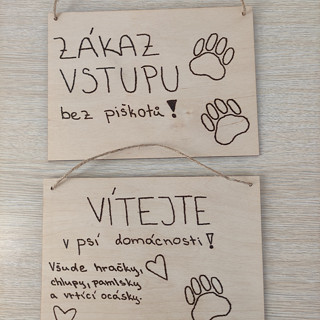 ZÁKAZ
VSTUPU
bez piškotů!
VÍTEJTE
v psí domácnosti!
Všude hračky,
chlupy, pamlsky
a vrtící ocásky.